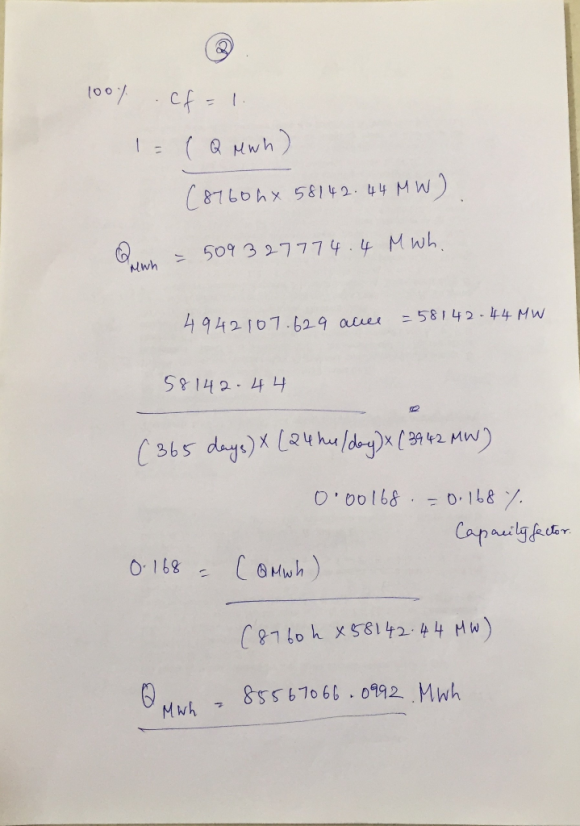 2
100% . Cf = 1.
1 = (Q Mwh)
(8760h x 58142.44 MW).
Q Mwh = 509327774.4 Mwh.
4942107.629 acres = 58142.44 MW
58142.44
(365 days) x (24 hrs/day) x (3942 MW)
0.00168 . = 0.168 %.
Capacity factor.
0.168 = (QMwh)
(8760h x 58142.44 MW)
Q Mwh = 85567066.0992 Mwh